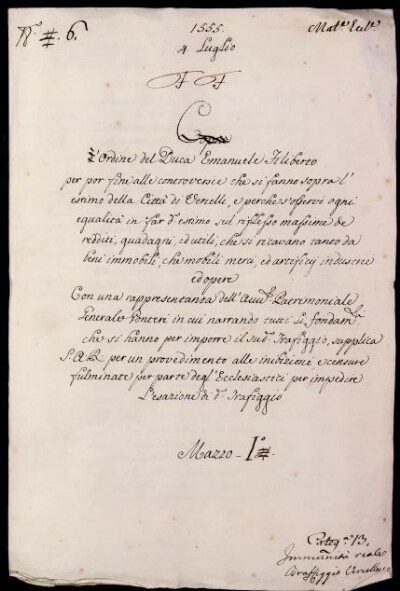 N.° #. 6.
1555.
4 Luglio
Mat.e Eccl.e
L'Ordine del Duca Emanuele Filiberto
per por fine alle controversie che si fanno sopra l'
estimo della Città di Vercelli, e perche s'osservi ogni
equalità in far d.° estimo sul riflesso massime de
redditi, guadagni, ed utili, che si ricavano tanto da
beni immobili, che mobili merci, ed artificij industrie
ed opere
Con una rappresentanza dell'Avv.° Patrimoniale
Generale Ponteri in cui narrando tutti li fondam.ti
che si hanno per imporre il sud.° Trafiggio, supplica
S.A.R. per un provedimento alle inibizioni e censure
fulminate per parte degl'Ecclesiastici per impedire
l'esazione di d.° Trafiggio
Mazzo - I.° #.
Categ.a 13.
Immunità reale